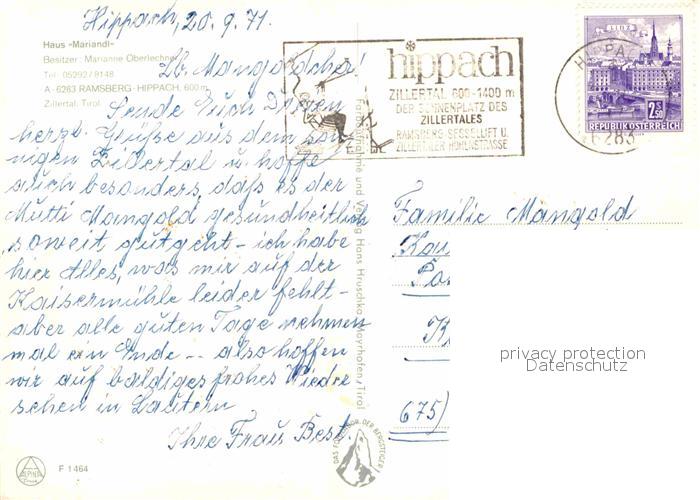 Hippach, 20.9.71.
Haus «Mariandl»
Besitzer: Marianne Oberlechner
Tel. 05292/8148
A-6283 RAMSBERG-HIPPACH, 600 m
Zillertal, Tirol
Lb. Mangoldcher!
Sende Euch Dreien
herzl. Grüße aus dem son
nigen Zillertal u. hoffe
auch besonders, daß es der
Mutti Mangold gesundheitlich
soweit gutgeht – ich habe
hier Alles, was mir auf der
Kaisermühle leider fehlt –
aber alle guten Tage nehmen
mal ein Ende -- also hoffen
wir auf baldiges frohes Wieder
sehen in Lautern
Ihre Frau Best.
ALPINA
F 1464
Farbaufnahme und Verlag Hans Hruschka, Mayrhofen, Tirol
DAS FOTO VON DER BERGSTEIGER
hippach
ZILLERTAL 600-1400 m
DER SONNENPLATZ DES
ZILLERTALES
RAMSBERG SESSELLIFT U.
ZILLERTALER HÖHENSTRASSE
HIPPA
6283
LINZ
2.50
REPUBLIK ÖSTERREICH
Familie Mangold
Kai
Po
K
675)
privacy protection
Datenschutz